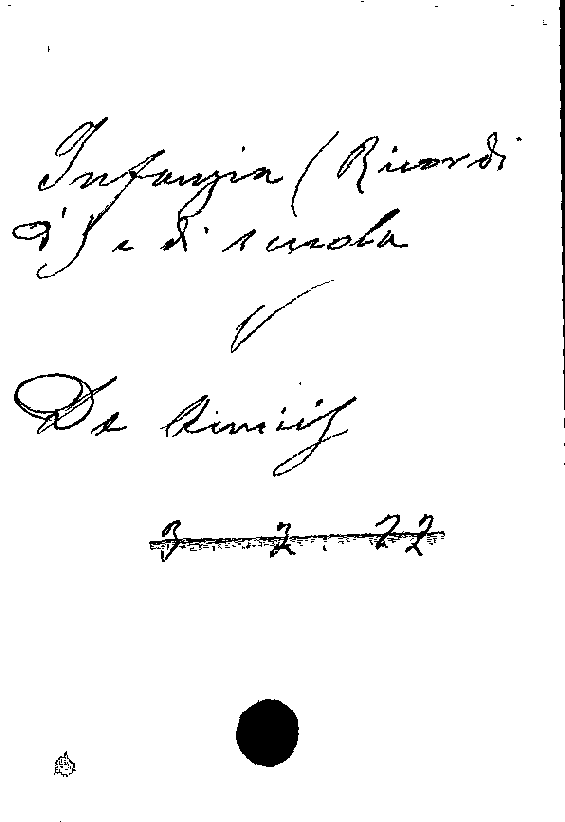 Infanzia (Ricordi
d') e di scuola
De Amicis
3 2. 22